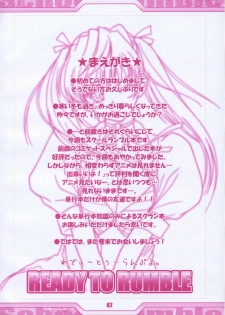 ★まえがき★
●初めての方ははじめまして、
そうでない方お久しぶりです
●寒い冬も過ぎ、めっきり春らしくなってきた
昨今ですが、いかがお過ごしでしょうか？
●…と前置きはこれぐらいにして
今回もスクールランブル本です。
前回のコミケットスペシャルで出した本が
好評だったので、今回もあやかってみました。
しかしながら、相変わらずアニメは見れません…
「出来いいよ！」って評判を聞く度に
アニメ見たいなー、とは思いつつも
見れないままです…
単行本だけが俺の友達ですよ！
●そんな単行本知識のみによるスクラン本
お楽しみいただけましたら幸いです。
●ではでは、また巻末でお会いしましょう！
れでぃーとぅーらんぶる。
READY TO RUMBLE
02